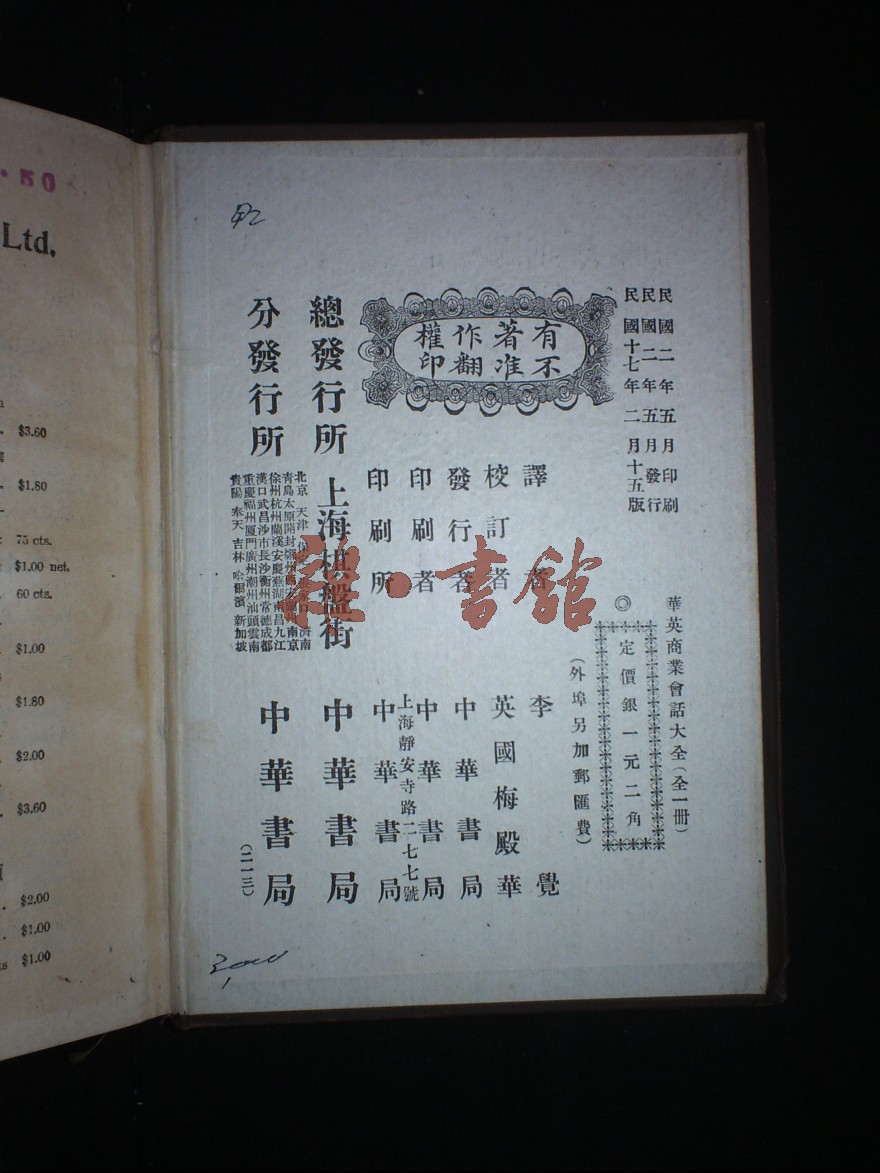 民國二年五月印刷
民國二年五月發行
民國十七年二月十五版
有著作權
不准翻印
華英商業會話大全(全一冊)
◎定價銀一元二角
(外埠另加郵匯費)
譯者 李覺
校訂者 英國梅殿華
發行者 中華書局
印刷者 中華書局
上海靜安寺路二七七號
印刷所 中華書局
總發行所 上海棋盤街 中華書局
分發行所
北京 天津
青島太原開封
徐州杭州蘭溪安慶蕪湖南昌九江
漢口武昌沙市長沙衡州常德成都
重慶福州廈門廣州潮州汕頭雲南
貴陽 奉天 吉林 哈爾濱 新加坡
中華書局
(二一三)
雜·書館
.50
Ltd,
$3.60
$1.80
75 cts.
$1.00 net.
60 cts.
$1.00
$1.80
$2.00
$3.60
$2.00
$1.00
$1.00